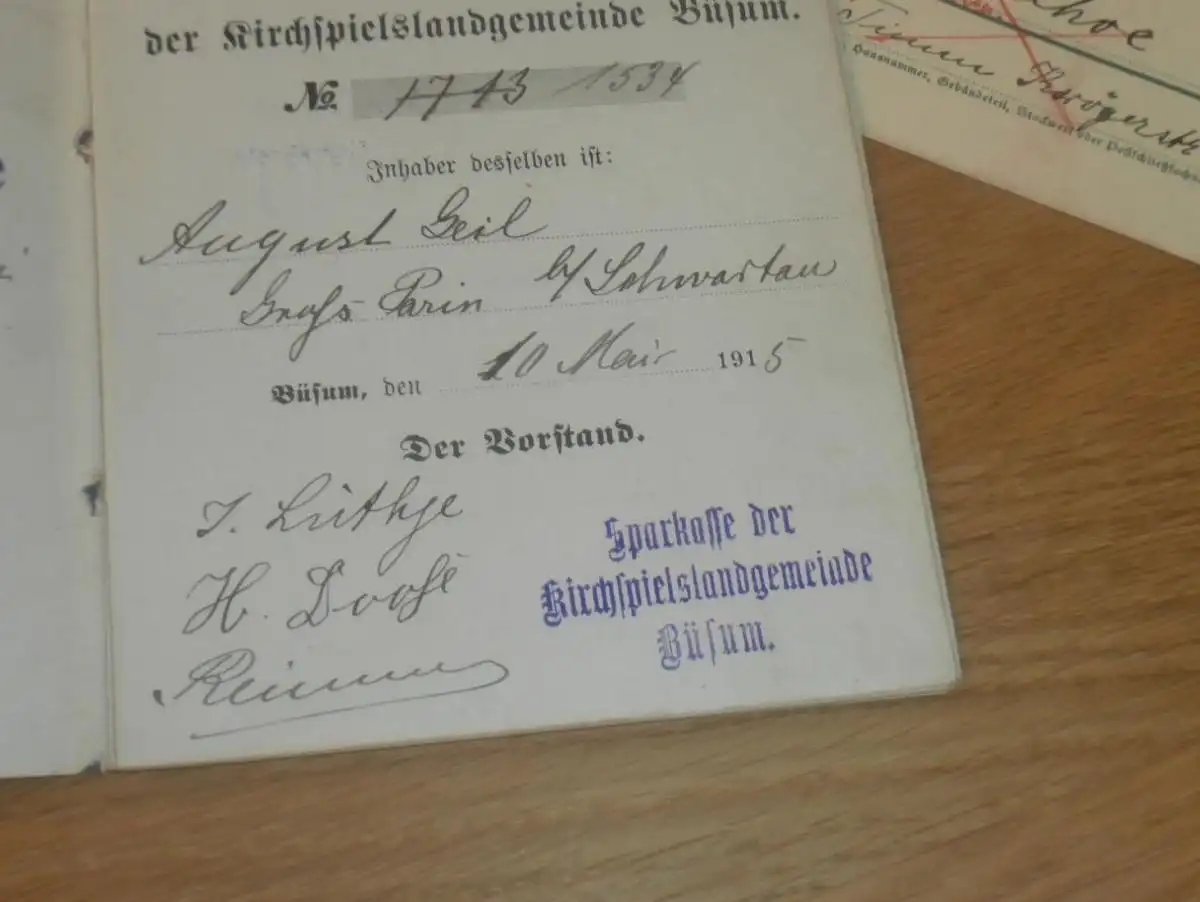 der Kirchspielslandgemeinde Büsum.
No. 1713 1534
Inhaber desselben ist:
August Geil
Groß Parin b/ Schwartau
Büsum, den 10 Mai 1915
Der Vorstand.
J. Lüthje
H. Doose
Reimer
Sparkasse der
Kirchspielslandgemeinde
Büsum.
hoe
Timm Krögerstr
Hausnummer, Gebäudeteil, Stockwerk oder Postschließfach